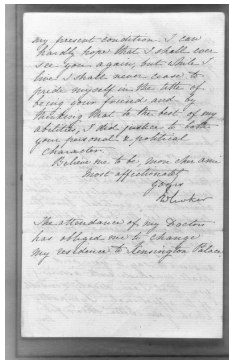 my present condition. I can
hardly hope that I shall ever
see you again, but while I
live I shall never cease to
pride myself in the title of
being your friend and by
thinking that to the best of my
abilities, I did justice to both
your personal & political
character.
Believe me to be, mon cher ami
Most affectionately
Yours
The attendance of my Doctors
has obliged me to change
my residence to Kensington Palace